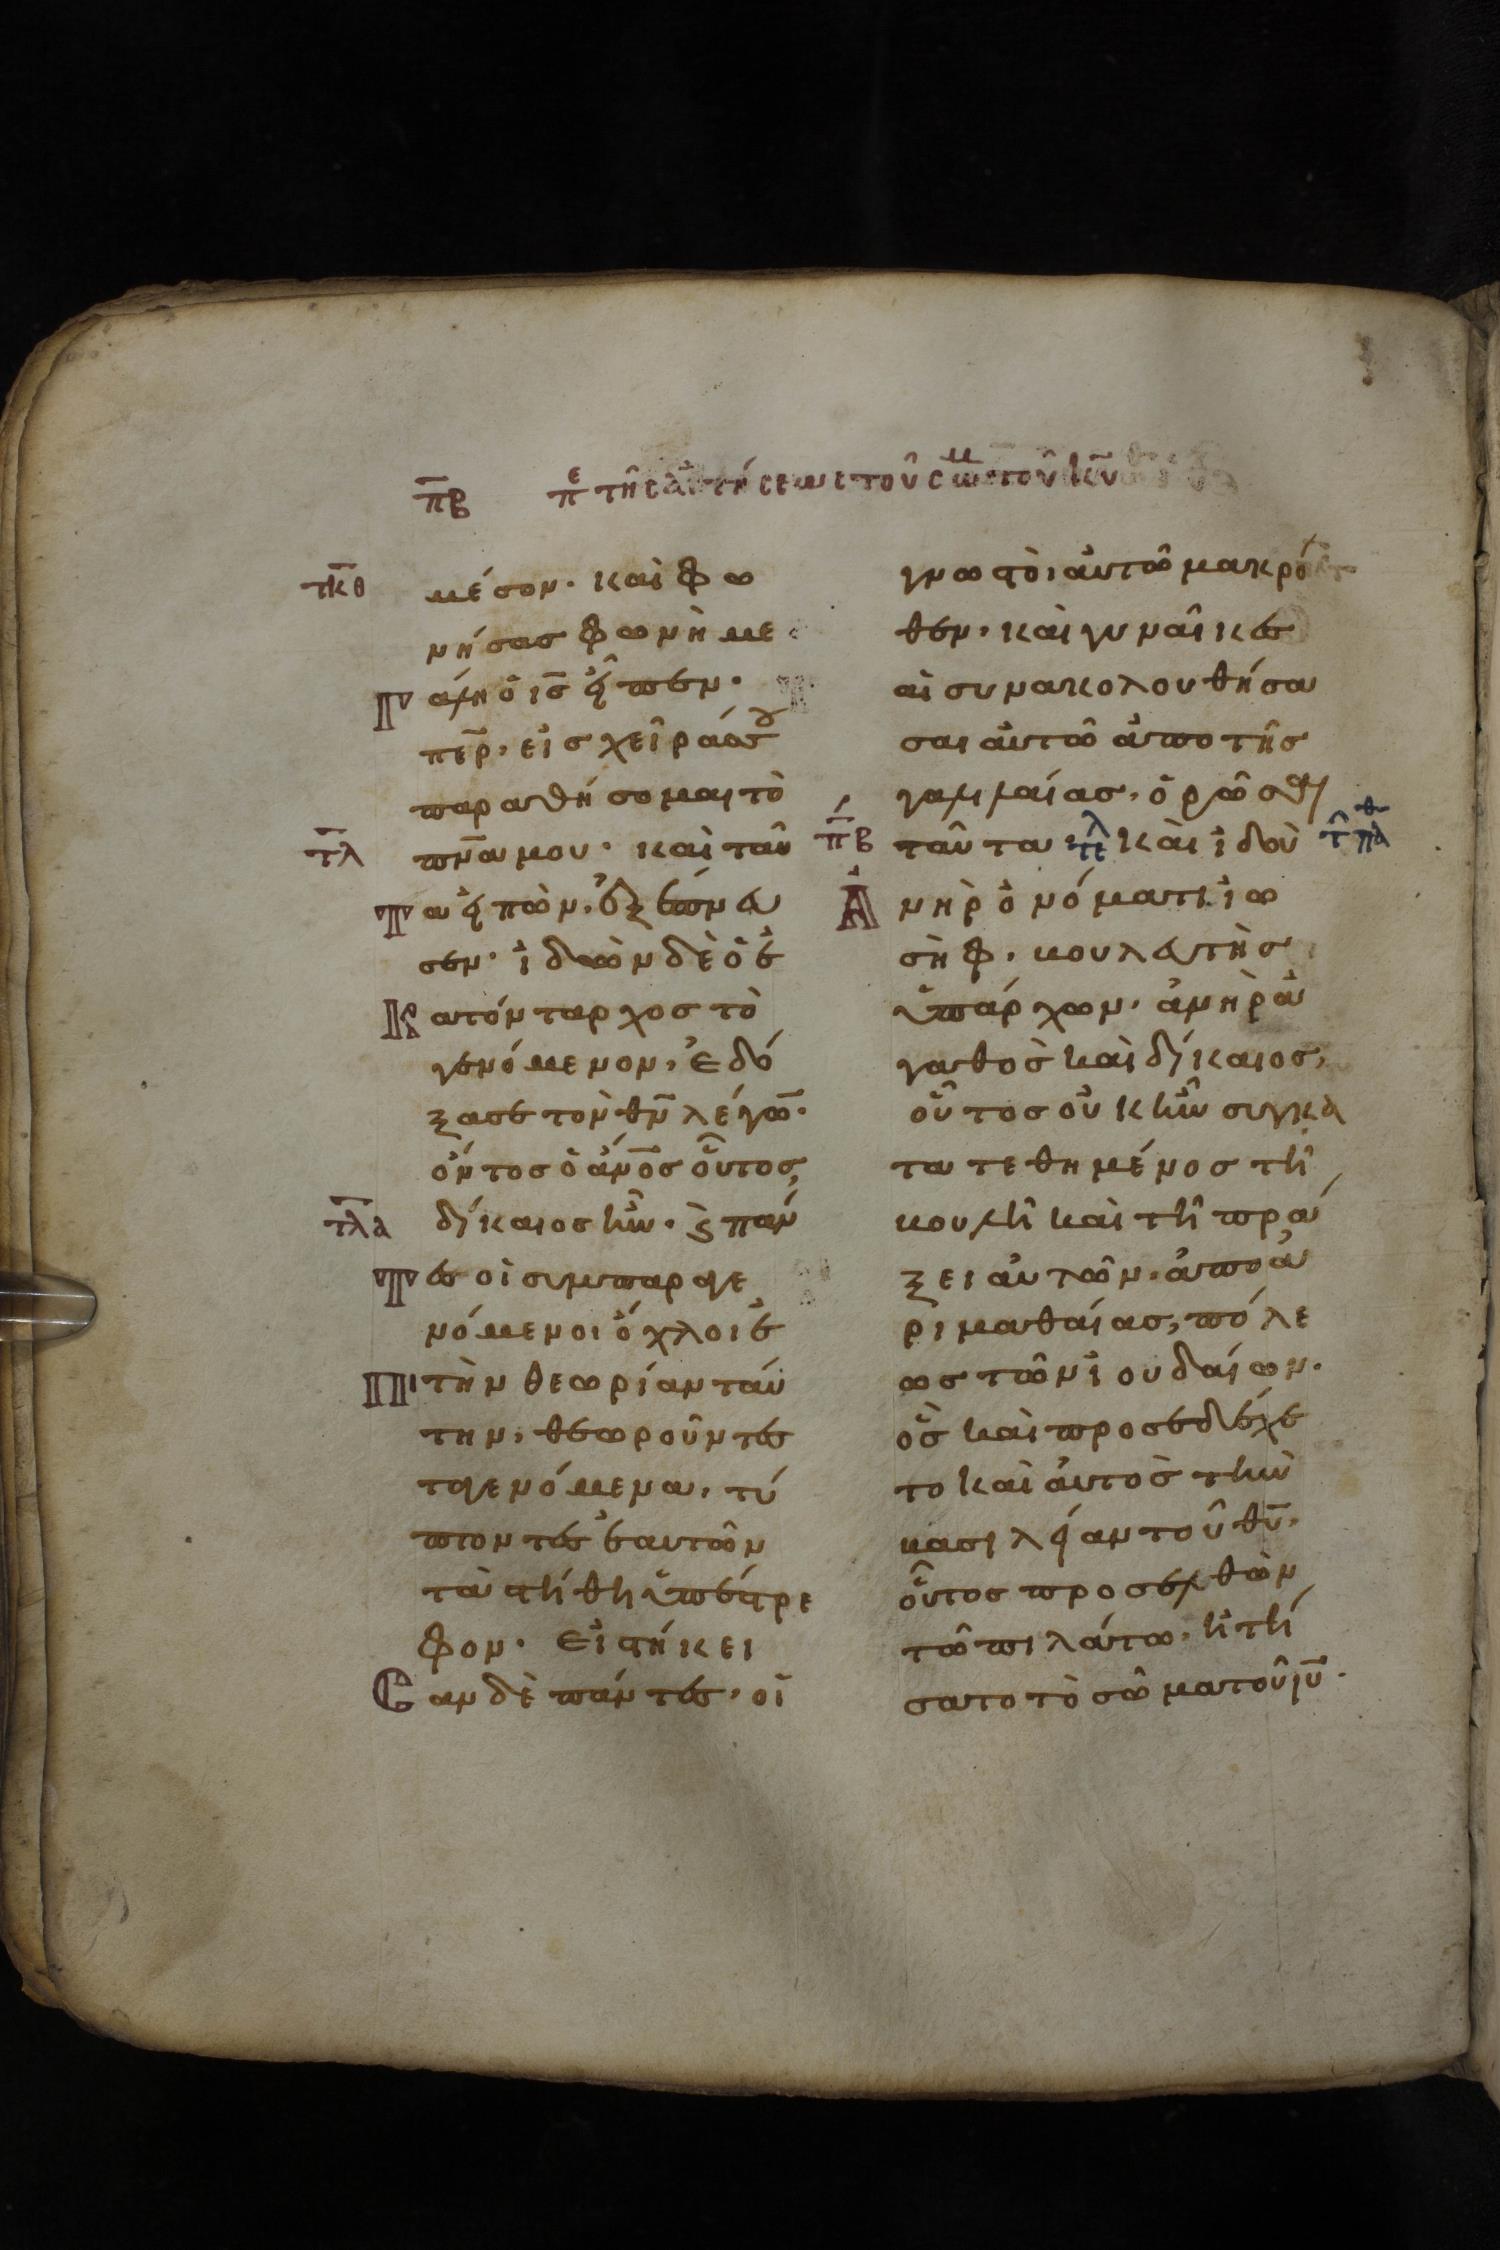 π̅β̅ πε τῆς αἰτήσεως τοῦ σώμ τοῦ κ̅υ̅
τ̅κ̅θ̅ μέσον· καὶ φω
νήσας φωνὴ με
Γ άλη ὁ ι̅ς̅ εἶπεν·
π̅ε̅ρ̅, εἰς χεῖράς σου
παραθήσομαι τὸ
τ̅λ̅ π̅ν̅α̅ μου· καὶ ταῦ
Τ α εἰπὼν, ἐξέπνευ
σεν· ἰδὼν δὲ ὁ ἑ
Κ ατόνταρχος τὸ
γενόμενον, ἐδό
ξασε τὸν θ̅ν̅ λέγω̅·
ὄντως ὁ ἄν̅ο̅ς οὗτος,
τ̅λ̅α̅ δίκαιος ἦν· καὶ πάν
Τ ες οἱ συμπαραγε
νόμενοι ὄχλοι ἐ
Π ὶ τὴν θεωρίαν ταύ
την, θεωροῦντες
τα γενόμενα, τύ
πτοντες ἑαυτῶν
τὰ στήθη ὑπέστρε
φον· Εἱστήκει
Σ αν δὲ πάντες, οἱ
γνωστοὶ αὐτῶ μακρό
θεν, καὶ γυναῖκες
αἱ συνακολουθήσα
σαι αὐτῶ ἀπο τῆς
γαλιλαίας, ὁρῶσαι
π̅β̅ ταῦτα τελ καὶ ἰδοὺ
Ἀ νὴρ ὀνόματι ἰω
σὴφ, βουλευτὴς
ὑπάρχων, ἀνὴρ ἀ
γαθὸς καὶ δίκαιος,
οὗτος οὐκ ἦν συγκα
τατεθημένος τῆ
βουλῆ καὶ τῆ πρά
ξει αὐτῶν, ἀπο ἀ
ριμαθαίας, πόλε
ως τῶν ἰουδαίων·
ὃς καὶ προσεδέχε
το καὶ αὐτὸς τὴν
βασιλείαν τοῦ θ̅υ̅,
οὗτος προσελθὼν
τῶ πιλάτω, ἠτή
σατο τὸ σῶμα τοῦ ι̅υ̅·